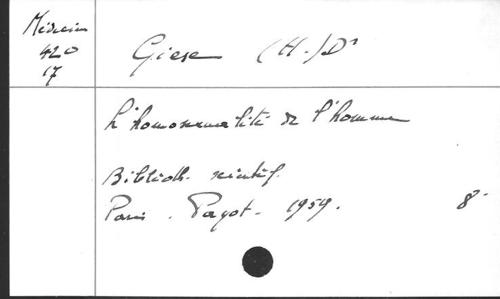 Médecine
420
17
Giese (H.) Dr
L'homosexualité de l'homme
Biblioth. scientif.
Paris. Payot. 1959. 8°